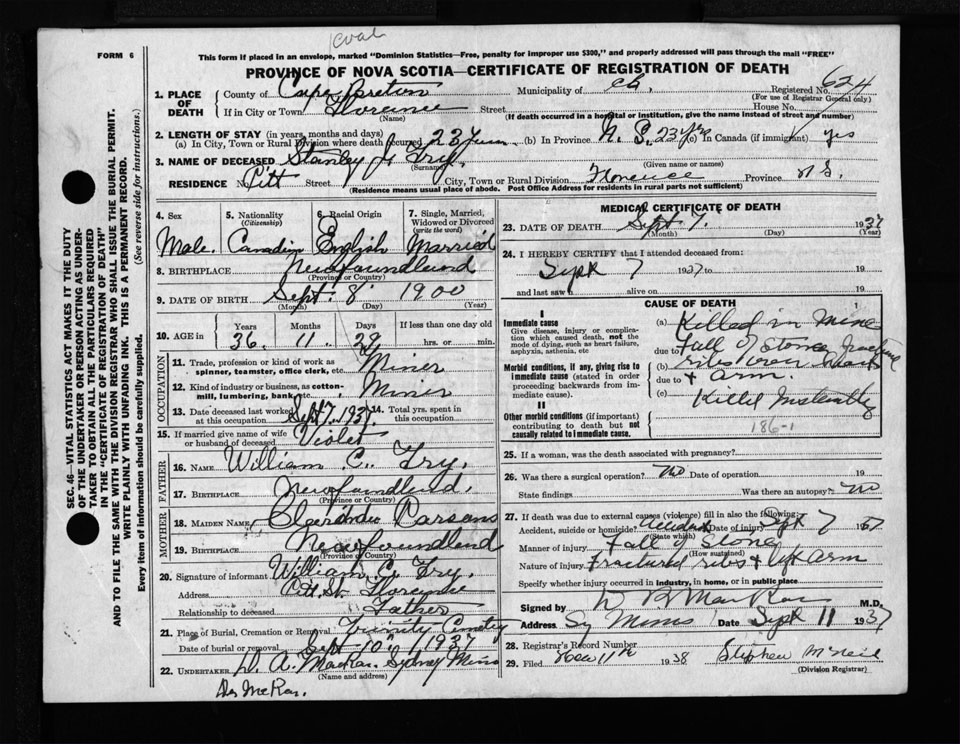 FORM 6
This form if placed in an envelope, marked "Dominion Statistics—Free, penalty for improper use $300," and properly addressed will pass through the mail "FREE"
PROVINCE OF NOVA SCOTIA—CERTIFICATE OF REGISTRATION OF DEATH
SEC. 46—VITAL STATISTICS ACT MAKES IT THE DUTY
OF THE UNDERTAKER OR PERSON ACTING AS UNDER-
TAKER TO OBTAIN ALL THE PARTICULARS REQUIRED
IN THE "CERTIFICATE OF REGISTRATION OF DEATH"
AND TO FILE THE SAME WITH THE DIVISION REGISTRAR WHO SHALL ISSUE THE BURIAL PERMIT.
WRITE PLAINLY WITH UNFADING INK. THIS IS A PERMANENT RECORD.
Every item of Information should be carefully supplied. (See reverse side for instructions.)
1. PLACE OF DEATH
County of Cape Breton Municipality of C.B. Registered No. 624
(For use of Registrar General only)
If in City or Town Florence Street House No.
(Name) (If death occurred in a hospital or institution, give the name instead of street and number)
2. LENGTH OF STAY (in years, months and days)
(a) In City, Town or Rural Division where death occurred 23 (b) In Province N. S. 23 yrs (c) In Canada (if immigrant) yes
3. NAME OF DECEASED Stanley J. Fry.
(Surname) (Given name or names)
RESIDENCE No. Pitt Street City, Town or Rural Division Florence Province N S.
(Residence means usual place of abode. Post Office Address for residents in rural parts not sufficient)
4. Sex 5. Nationality (Citizenship) 6. Racial Origin 7. Single, Married, Widowed or Divorced (write the word)
Male. Canadian English Married
8. BIRTHPLACE Newfoundland
(Province or Country)
9. DATE OF BIRTH Sept. 8 1900
(Month) (Day) (Year)
10. AGE in Years Months Days If less than one day old
36. 11. 29 hrs. or min.
OCCUPATION
11. Trade, profession or kind of work as spinner, teamster, office clerk, etc. Miner
12. Kind of industry or business, as cotton-mill, lumbering, bank, etc. Miner
13. Date deceased last worked at this occupation Sept 7. 1937. 14. Total yrs. spent in this occupation
15. If married give name of wife or husband of deceased Violet
FATHER
16. NAME William C. Fry.
17. BIRTHPLACE Newfoundland.
(Province or Country)
MOTHER
18. MAIDEN NAME Parsons
19. BIRTHPLACE Newfoundland
(Province or Country)
20. Signature of informant William C. Fry.
Address Pitt St. Florence
Relationship to deceased Father
21. Place of Burial, Cremation or Removal Trinity Cemetery
Date of burial or removal Sept 10" 1937
22. UNDERTAKER D. A. MacRae. Sydney Mines
(Name and address)
McRae.
MEDICAL CERTIFICATE OF DEATH
23. DATE OF DEATH Sept 7. 1937
(Month) (Day) (Year)
24. I HEREBY CERTIFY that I attended deceased from:
Sept 7 1937 to 19
and last saw h alive on 19
CAUSE OF DEATH
I
Immediate cause
Give disease, injury or complication which caused death, not the mode of dying, such as heart failure, asphyxia, asthenia, etc
Morbid conditions, if any, giving rise to immediate cause (stated in order proceeding backwards from immediate cause).
II
Other morbid conditions (if important) contributing to death but not causally related to immediate cause.
(a) Killed in Mine
due to Fall of Stone
(b) ribs
due to + Arm.
(c) Killed Instantly
186-1
25. If a woman, was the death associated with pregnancy?
26. Was there a surgical operation? No Date of operation 19
State findings Was there an autopsy? No
27. If death was due to external causes (violence) fill in also the following:
Accident, suicide or homicide? Accident Date of injury Sept 7 1937
(State which)
Manner of injury Fall of Stone
(How sustained)
Nature of injury Fractured ribs + left arm
Specify whether injury occurred in industry, in home, or in public place
Signed by M.D.
Address Sy Mines Date Sept 11 1937
28. Registrar's Record Number
29. Filed 11th 1938 Stephen McNeil
(Division Registrar)